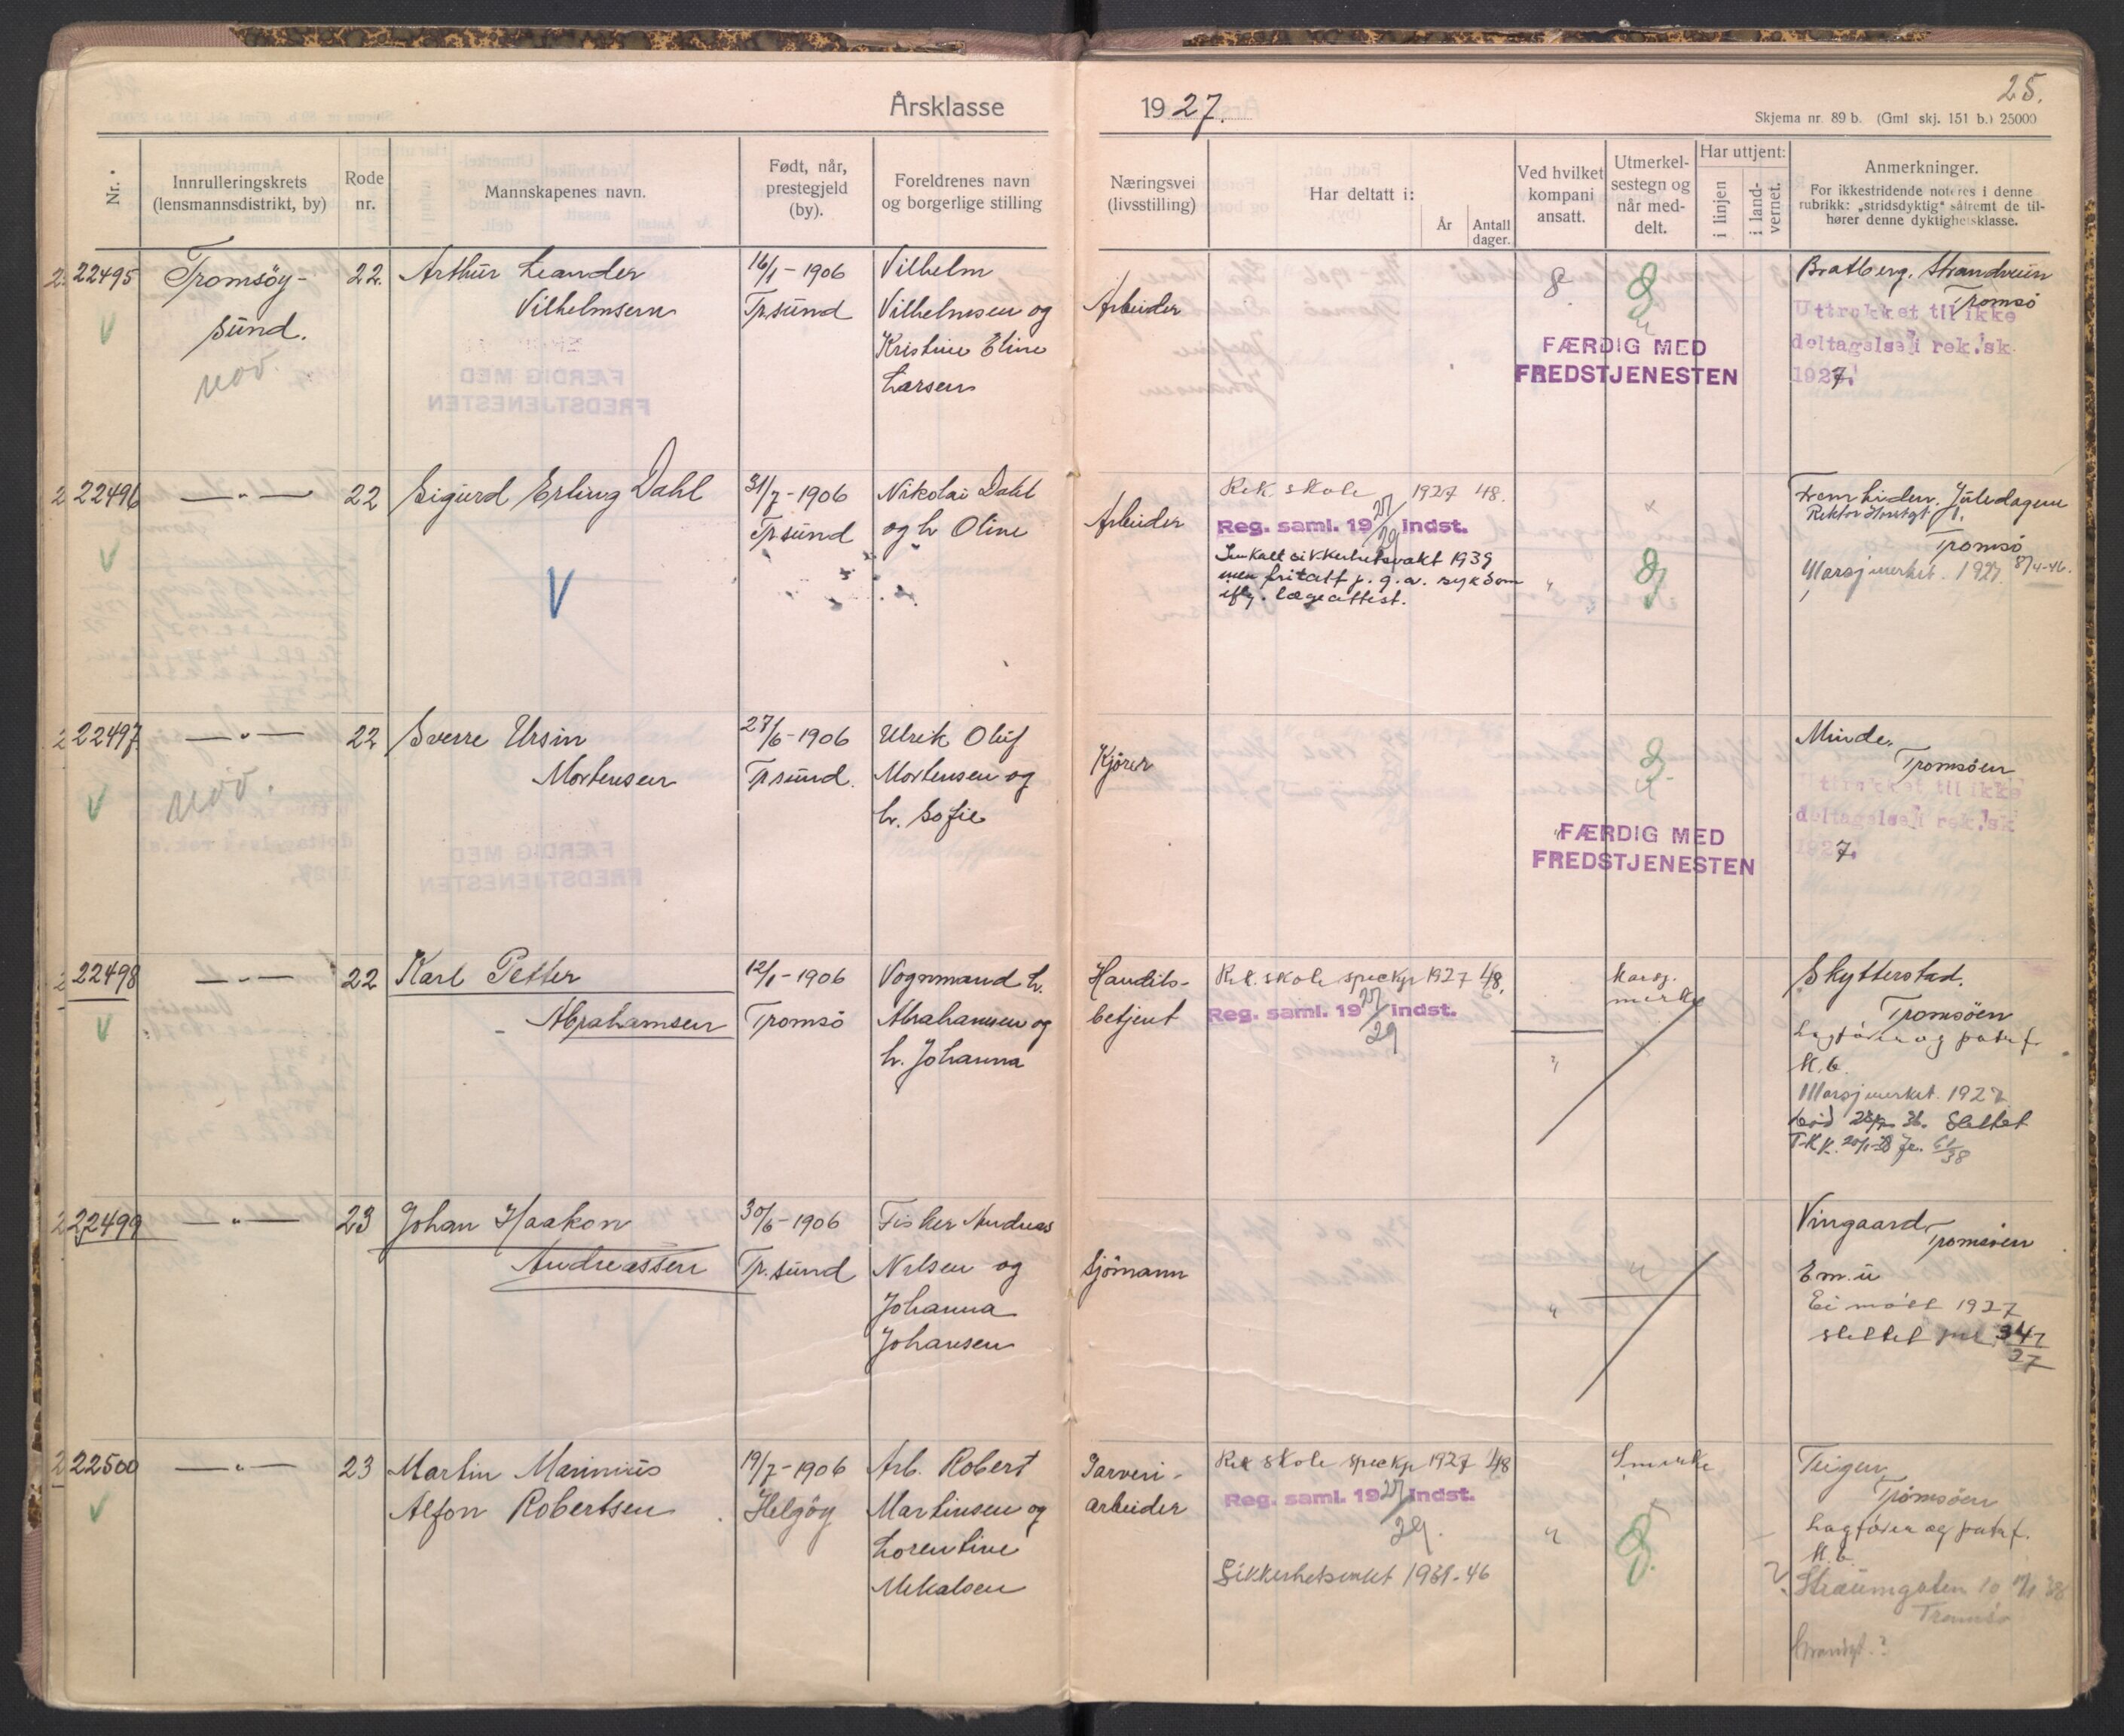 25.
Årsklasse 1927.
Skjema nr. 89 b. (Gml skj. 151 b.) 25000
Nr.
Innrulleringskrets
(lensmannsdistrikt, by)
Rode
nr.
Mannskapenes navn.
Født, når,
prestegjeld
(by).
Foreldrenes navn
og borgerlige stilling
Næringsvei
(livsstilling)
Har deltatt i:
År
Antall
dager.
Ved hvilket
kompani
ansatt.
Utmerkel-
sestegn og
når med-
delt.
Har uttjent:
i linjen
i land-
vernet.
Anmerkninger.
For ikkestridende noteres i denne
rubrikk: „stridsdyktig“ såfremt de til-
hører denne dyktighetsklasse.
22495
Tromsöy-
sund.
22.
Arthur Leander
Vilhelmsen
16/1-1906
Tp.sund
Vilhelm
Vilhelmsen og
Kristine Eline
Larsen
Arbeider
8
FÆRDIG MED
FREDSTJENESTEN
Bratberg, Strandveien
Tromsö
Uttrukket til ikke
deltagelse i rek.sk
1927.
22496
—„—
22
Sigurd Erling Dahl
31/7-1906
Tp.sund
Nikolai Dahl
og h. Oline
Arbeider
Rek. skole 1927 48.
Reg. saml. 1927/29 indst.
Innkalt sikkerhetsvakt 1939
men fritatt p. g. a. sykdom
iflg. lægeattest.
Fremtiden, Juledagene
Tromsö
Marsjmerket. 1927. 8/4-46.
22497
—„—
22
Sverre Ursin
Mortensen
27/6-1906
Tp.sund.
Ulrik Oluf
Mortensen og
h. Sofie
Kjörer
FÆRDIG MED
FREDSTJENESTEN
Minde,
Tromsöen
Uttrukket til ikke
deltagelse i rek.sk
1927.
22498
—„—
22
Karl Petter
Abrahamsen
12/1-1906
Tromsö
Vognmand L.
Abrahamsen og
h. Johanna
Handels-
betjent
Rek. skole speckp 1927 48.
Reg. saml. 1927/29 indst.
Marsj.
merke
Skytterstad.
Tromsöen
Lagförer og patrf.
K. b.
Marsjmerket. 1927
Slettet
22499
—„—
23
Johan Haakon
Andreassen
30/6-1906
Tp. sund
Fisker Andreas
Nilsen og
Johanna
Johansen
Sjömann
Vingaard,
Tromsöen
Em. u
Ei mött 1927
slettet jnl. 347/27
22500
—„—
23
Martin Marinius
Alfon Robertsen
19/7-1906
Helgöy
Arb. Robert
Martinsen og
Lorentine
Mikalsen
Garveri-
arbeider
Rek skole speckp 1927 48
Reg. saml. 1927/29. indst.
Sikkerhetsvakt 1939-46
Teigen,
Tromsöen
Lagförer og patrf.
K. b.
Straumgaten 10
Tromsö